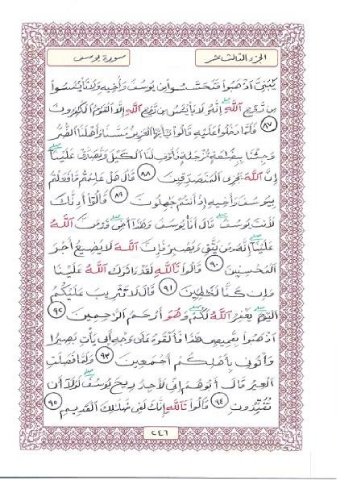 الجزء الثالث عشر
سورة يوسف
يَٰبَنِىَّ ٱذْهَبُوا۟ فَتَحَسَّسُوا۟ مِن يُوسُفَ وَأَخِيهِ وَلَا تَا۟يْـَٔسُوا۟
مِن رَّوْحِ ٱللَّهِ إِنَّهُۥ لَا يَا۟يْـَٔسُ مِن رَّوْحِ ٱللَّهِ إِلَّا ٱلْقَوْمُ ٱلْكَٰفِرُونَ
٨٧ فَلَمَّا دَخَلُوا۟ عَلَيْهِ قَالُوا۟ يَٰٓأَيُّهَا ٱلْعَزِيزُ مَسَّنَا وَأَهْلَنَا ٱلضُّرُّ
وَجِئْنَا بِبِضَٰعَةٍ مُّزْجَىٰةٍ فَأَوْفِ لَنَا ٱلْكَيْلَ وَتَصَدَّقْ عَلَيْنَآ
إِنَّ ٱللَّهَ يَجْزِى ٱلْمُتَصَدِّقِينَ ٨٨ قَالَ هَلْ عَلِمْتُم مَّا فَعَلْتُم
بِيُوسُفَ وَأَخِيهِ إِذْ أَنتُمْ جَٰهِلُونَ ٨٩ قَالُوٓا۟ أَءِنَّكَ
لَأَنتَ يُوسُفُ قَالَ أَنَا۠ يُوسُفُ وَهَٰذَآ أَخِى قَدْ مَنَّ ٱللَّهُ
عَلَيْنَآ إِنَّهُۥ مَن يَتَّقِ وَيَصْبِرْ فَإِنَّ ٱللَّهَ لَا يُضِيعُ أَجْرَ
ٱلْمُحْسِنِينَ ٩٠ قَالُوا۟ تَٱللَّهِ لَقَدْ ءَاثَرَكَ ٱللَّهُ عَلَيْنَا
وَإِن كُنَّا لَخَٰطِـِٔينَ ٩١ قَالَ لَا تَثْرِيبَ عَلَيْكُمُ
ٱلْيَوْمَ يَغْفِرُ ٱللَّهُ لَكُمْ وَهُوَ أَرْحَمُ ٱلرَّٰحِمِينَ ٩٢
ٱذْهَبُوا۟ بِقَمِيصِى هَٰذَا فَأَلْقُوهُ عَلَىٰ وَجْهِ أَبِى يَأْتِ بَصِيرًا
وَأْتُونِى بِأَهْلِكُمْ أَجْمَعِينَ ٩٣ وَلَمَّا فَصَلَتِ
ٱلْعِيرُ قَالَ أَبُوهُمْ إِنِّى لَأَجِدُ رِيحَ يُوسُفَ لَوْلَآ أَن
تُفَنِّدُونِ ٩٤ قَالُوا۟ تَٱللَّهِ إِنَّكَ لَفِى ضَلَٰلِكَ ٱلْقَدِيمِ ٩٥
٢٤٦